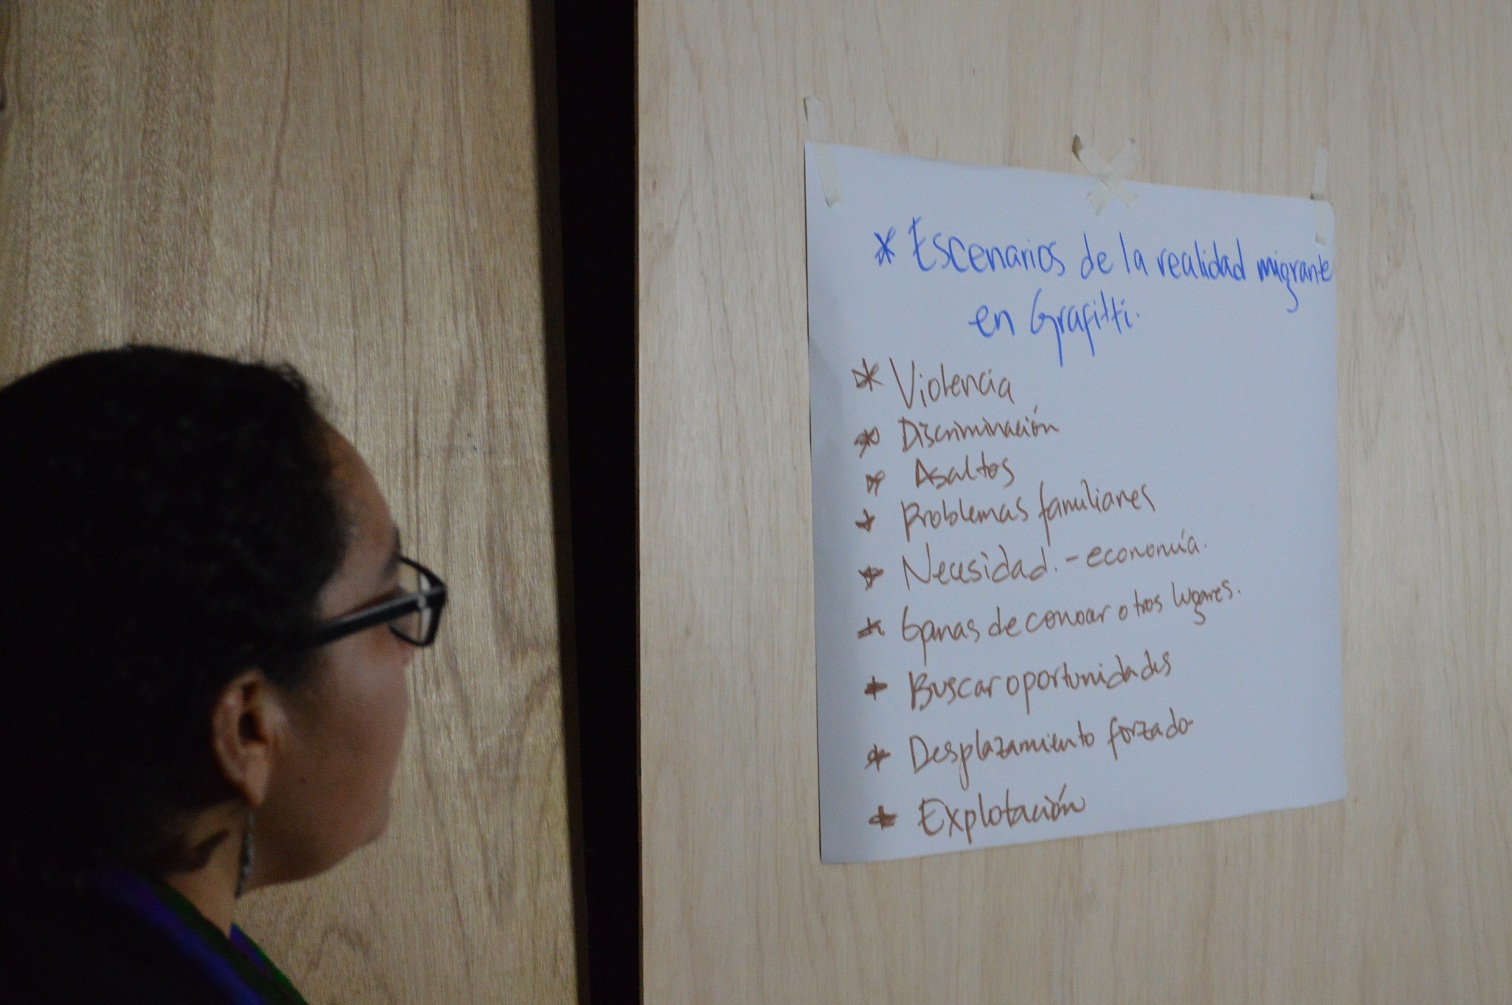 * Escenarios de la realidad migrante
en Grafitti.
* Violencia
* Discriminación
* Asaltos
* Problemas familiares
* Necesidad. - economía.
* Ganas de conocer otros lugares.
* Buscar oportunidades
* Desplazamiento forzado
* Explotación